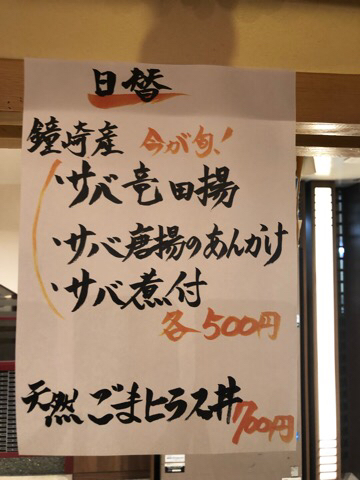 日替
鐘崎産 今が旬!
・サバ竜田揚
・サバ唐揚のあんかけ
・サバ煮付
各500円
天然ごまヒラス丼 700円